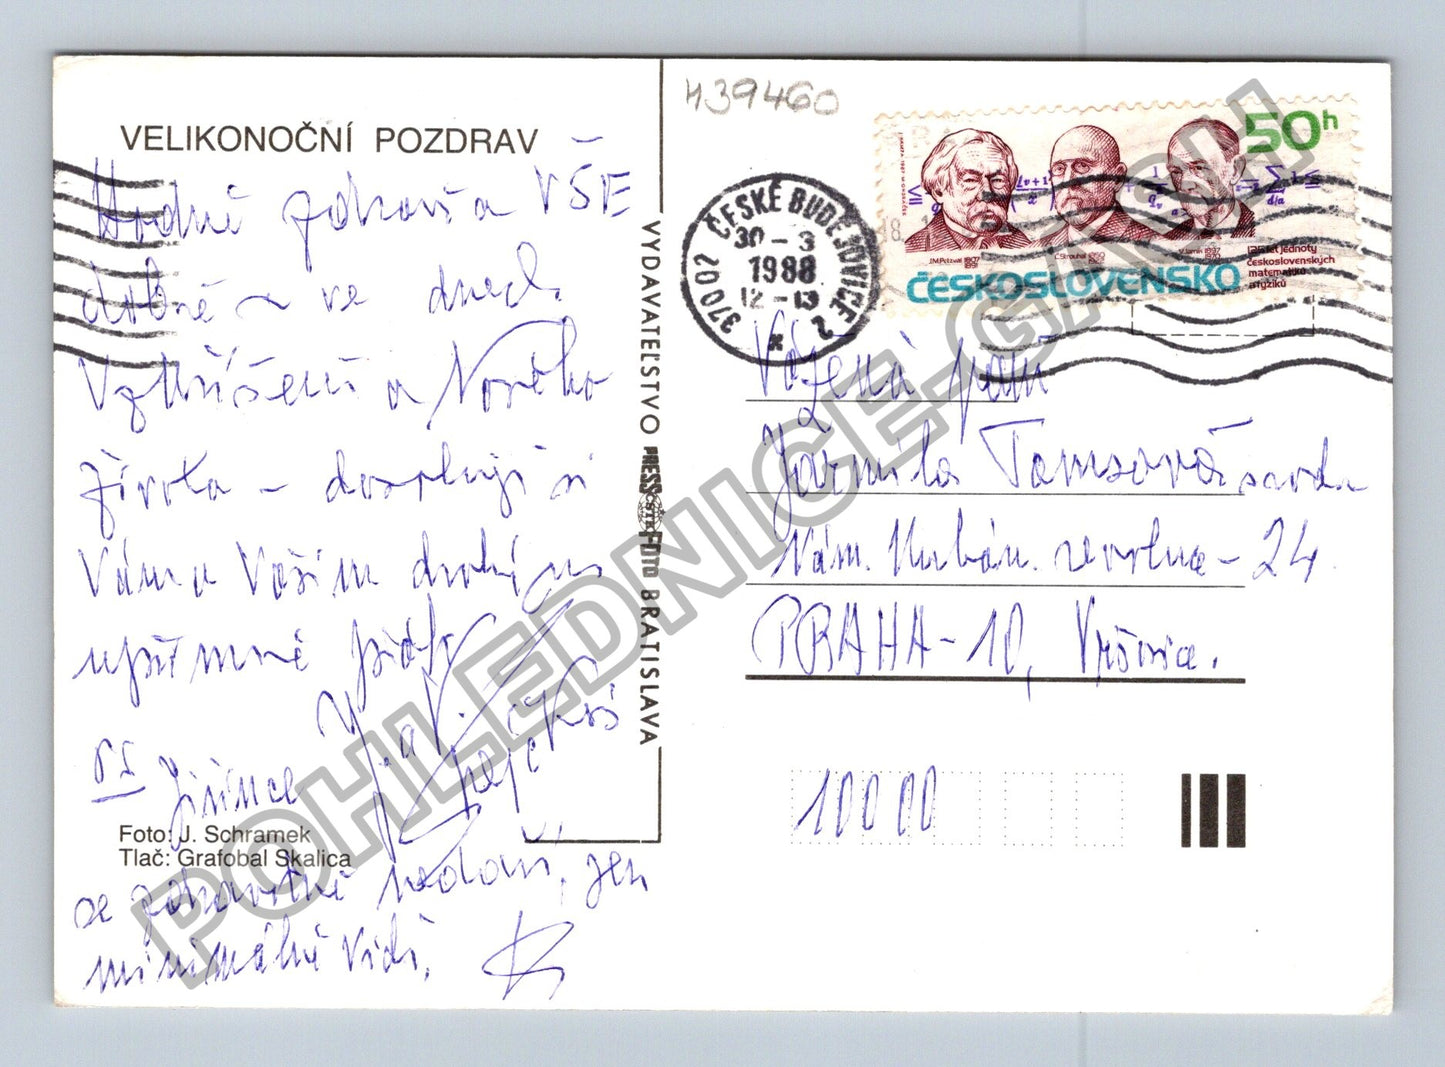 VELIKONOČNÍ POZDRAV
Hodně zdraví a VŠE
dobré ve dnech
Vzkříšení a Nového
života – dovoluji si
Vám a Vašim drahým
upřímně přát
Jiří Krejčí
PS Jiřince
Foto: J. Schramek
Tlač: Grafobal Skalica
se zdravotně nedaří, jen
minimálně vidí.
VYDAVATEĽSTVO PRESSFOTO BRATISLAVA
ČSTK
439460
370 02 ČESKÉ BUDĚJOVICE 2
30 – 3
1988
12 – 13
50h
J.M. Petzval 1807 1891
Č. Strouhal 1850 1922
V. Jarník 1897 1970
125 let jednoty
československých
matematiků
a fyziků
ČESKOSLOVENSKO
Vážená paní
Jarmila Tomsová
Nám. Kubán. revoluce – 24
PRAHA – 10, Vršovice.
100 00
POHLEDNICE-GACH